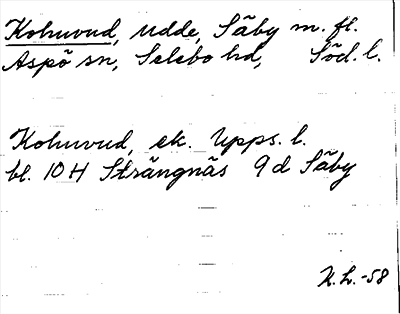 Kohuvud, udde, Säby m. fl.
Aspö sn, Selebo hd, Söd. l.
Kohuvud, ek. Upps. l.
bl. 10 H Strängnäs 9 d Säby
K.L.-58